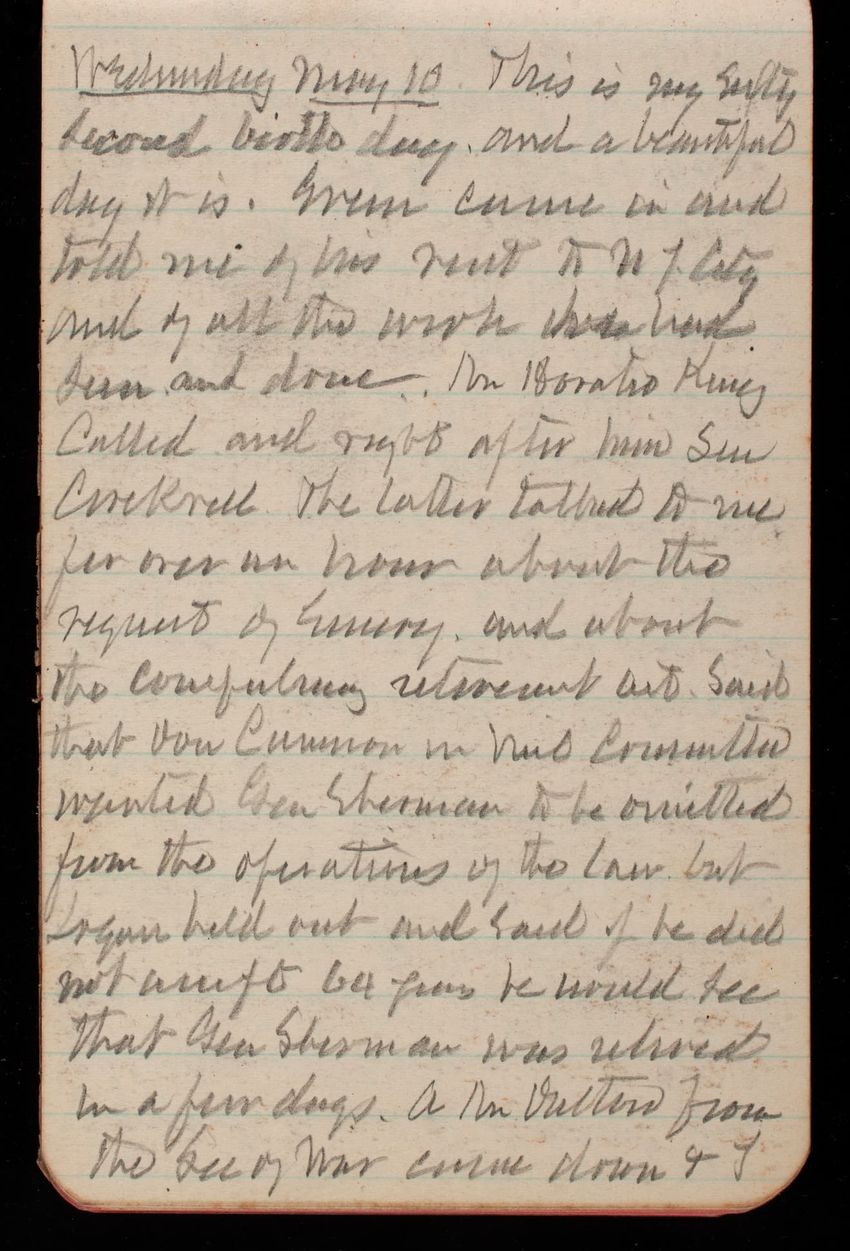 Wednesday May 10 This is my sixty
second birth day. and a beautiful
day it is. Green came in and
told me of his visit to N Y City
and of all the work he had
seen and done. Mr Horatio King
Called and right after him Sen
Cockrell. The latter talked to me
for over an hour about the
request of Emory. and about
the compulsory retirement act. Said
that Don Cameron in Mil Committee
wanted Gen Sherman to be omitted
from the operations of the law. but
Logan held out and said if he did
not accept 64 years he would see
that Gen Sherman was retired
in a few days. A Mr from
the Sec of War came down & I